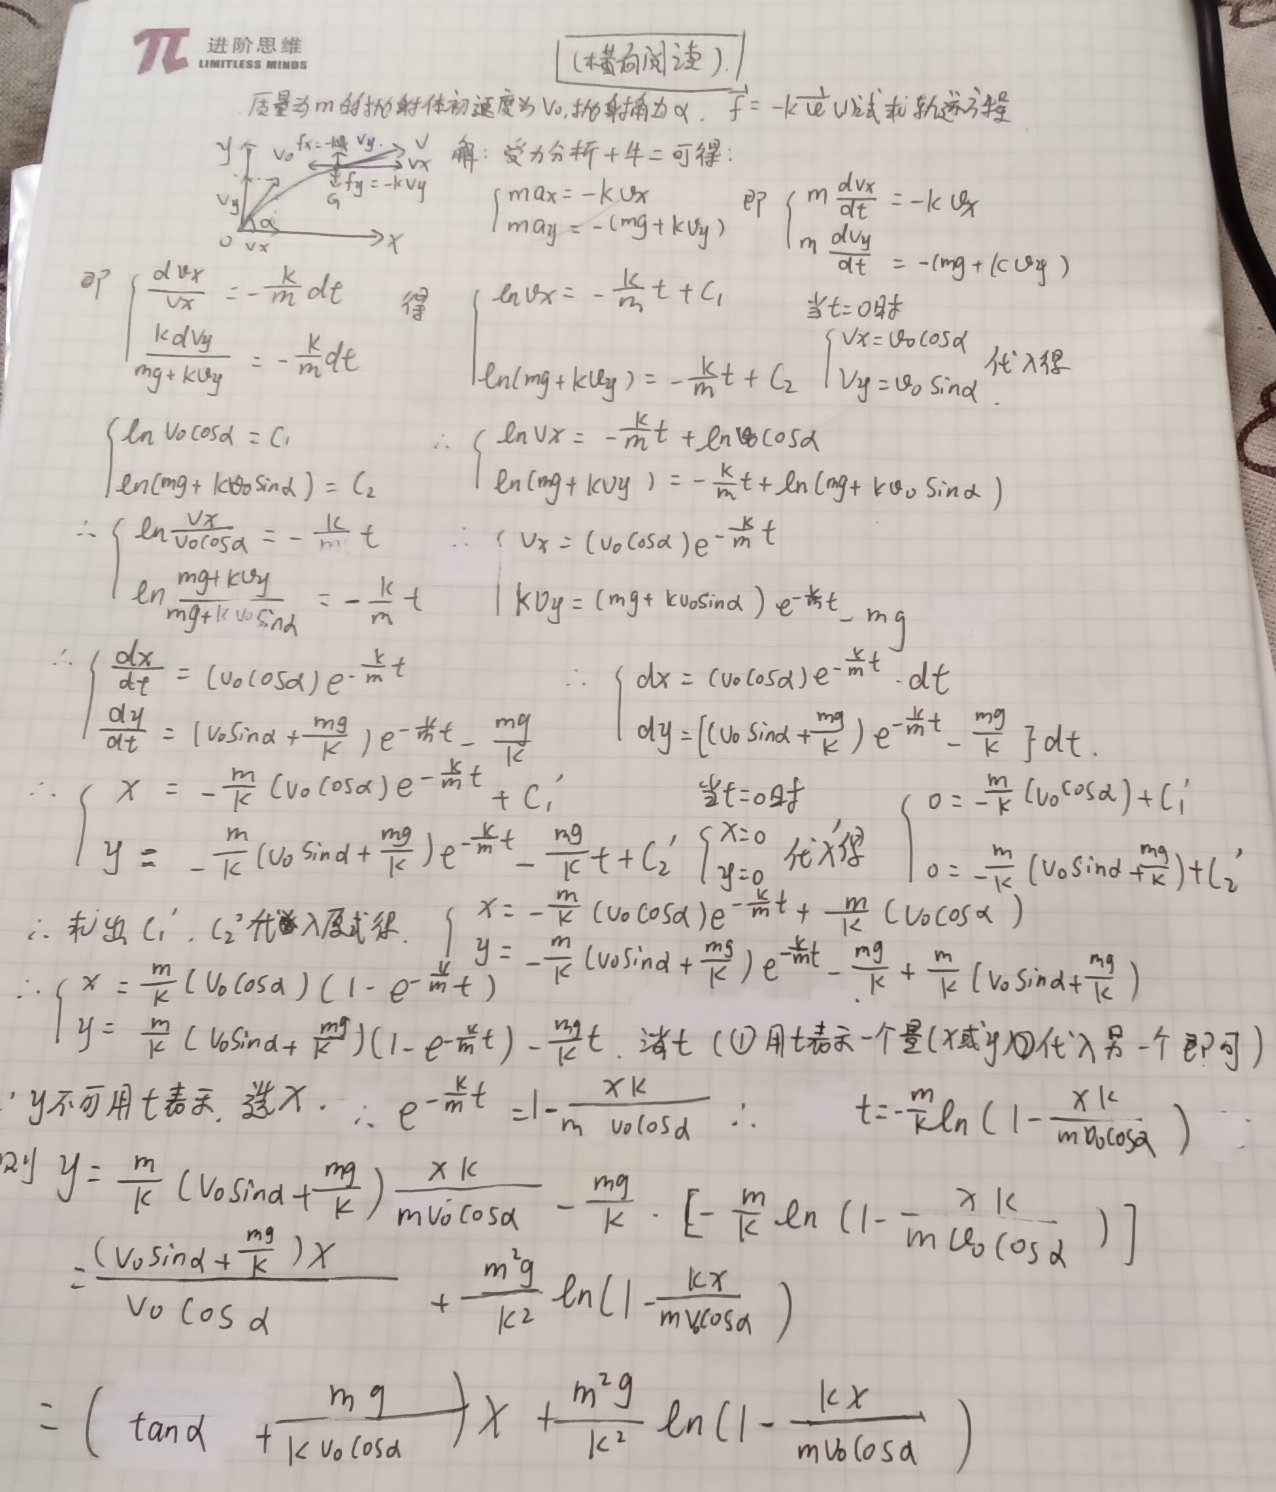 进阶思维
LIMITLESS MINDS
(横向阅读).
质量为m的抛射体初速度为V₀,抛射角为α. f⃗ = -kv⃗ 以试求轨迹方程
y V₀ fx=-kvx Vy V Vx
fy=-kVy G Vy α O Vx X
解: 受力分析+牛二可得:
{ max = -kvx  may = -(mg+kvy)  即 { m dvx/dt = -kvx  m dvy/dt = -(mg+kvy)
即 { dvx/vx = -k/m dt  kdvy/(mg+kvy) = -k/m dt  得 { lnvx = -k/m t + C₁  ln(mg+kvy) = -k/m t + C₂  当t=0时 { Vx=v₀cosα  Vy=v₀sinα. 代入得
{ lnv₀cosα = C₁  ln(mg+kv₀sinα) = C₂  ∴ { lnvx = -k/m t + lnv₀cosα  ln(mg+kvy) = -k/m t + ln(mg+kv₀sinα)
∴ { ln vx/(v₀cosα) = -k/m t  ln (mg+kvy)/(mg+kv₀sinα) = -k/m t  ∴ { vx = (v₀cosα)e^(-k/m t)  kvy = (mg+kv₀sinα)e^(-k/m t) - mg
∴ { dx/dt = (v₀cosα)e^(-k/m t)  dy/dt = (v₀sinα + mg/k)e^(-k/m t) - mg/k  ∴ { dx = (v₀cosα)e^(-k/m t)·dt  dy = [(v₀sinα + mg/k)e^(-k/m t) - mg/k}dt.
∴ { x = -m/k (v₀cosα)e^(-k/m t) + C₁'  y = -m/k (v₀sinα + mg/k)e^(-k/m t) - mg/k t + C₂'  当t=0时 { x=0  y=0 代入得 { 0 = -m/k (v₀cosα) + C₁'  0 = -m/k (v₀sinα + mg/k) + C₂'
∴ 求出C₁'、C₂'代入原式得. { x = -m/k (v₀cosα)e^(-k/m t) + m/k (v₀cosα)  y = -m/k (v₀sinα + mg/k)e^(-k/m t) - mg/k + m/k (v₀sinα + mg/k)
∴ { x = m/k (v₀cosα)(1 - e^(-k/m t))  y = m/k (v₀sinα + mg/k)(1 - e^(-k/m t)) - mg/k t. 消t (①用t表示一个量(x或y)②代入另一个即可)
∵ y不可用t表示, 选x. ∴ e^(-k/m t) = 1 - xk/(m v₀cosα) ∴ t = -m/k ln(1 - xk/(mv₀cosα))
则 y = m/k (v₀sinα + mg/k) xk/(mv₀cosα) - mg/k · [-m/k ln(1 - xk/(mv₀cosα))]
= (v₀sinα + mg/k)x/(v₀cosα) + m²g/k² ln(1 - kx/(mv₀cosα))
= (tanα + mg/(kv₀cosα))x + m²g/k² ln(1 - kx/(mv₀cosα))